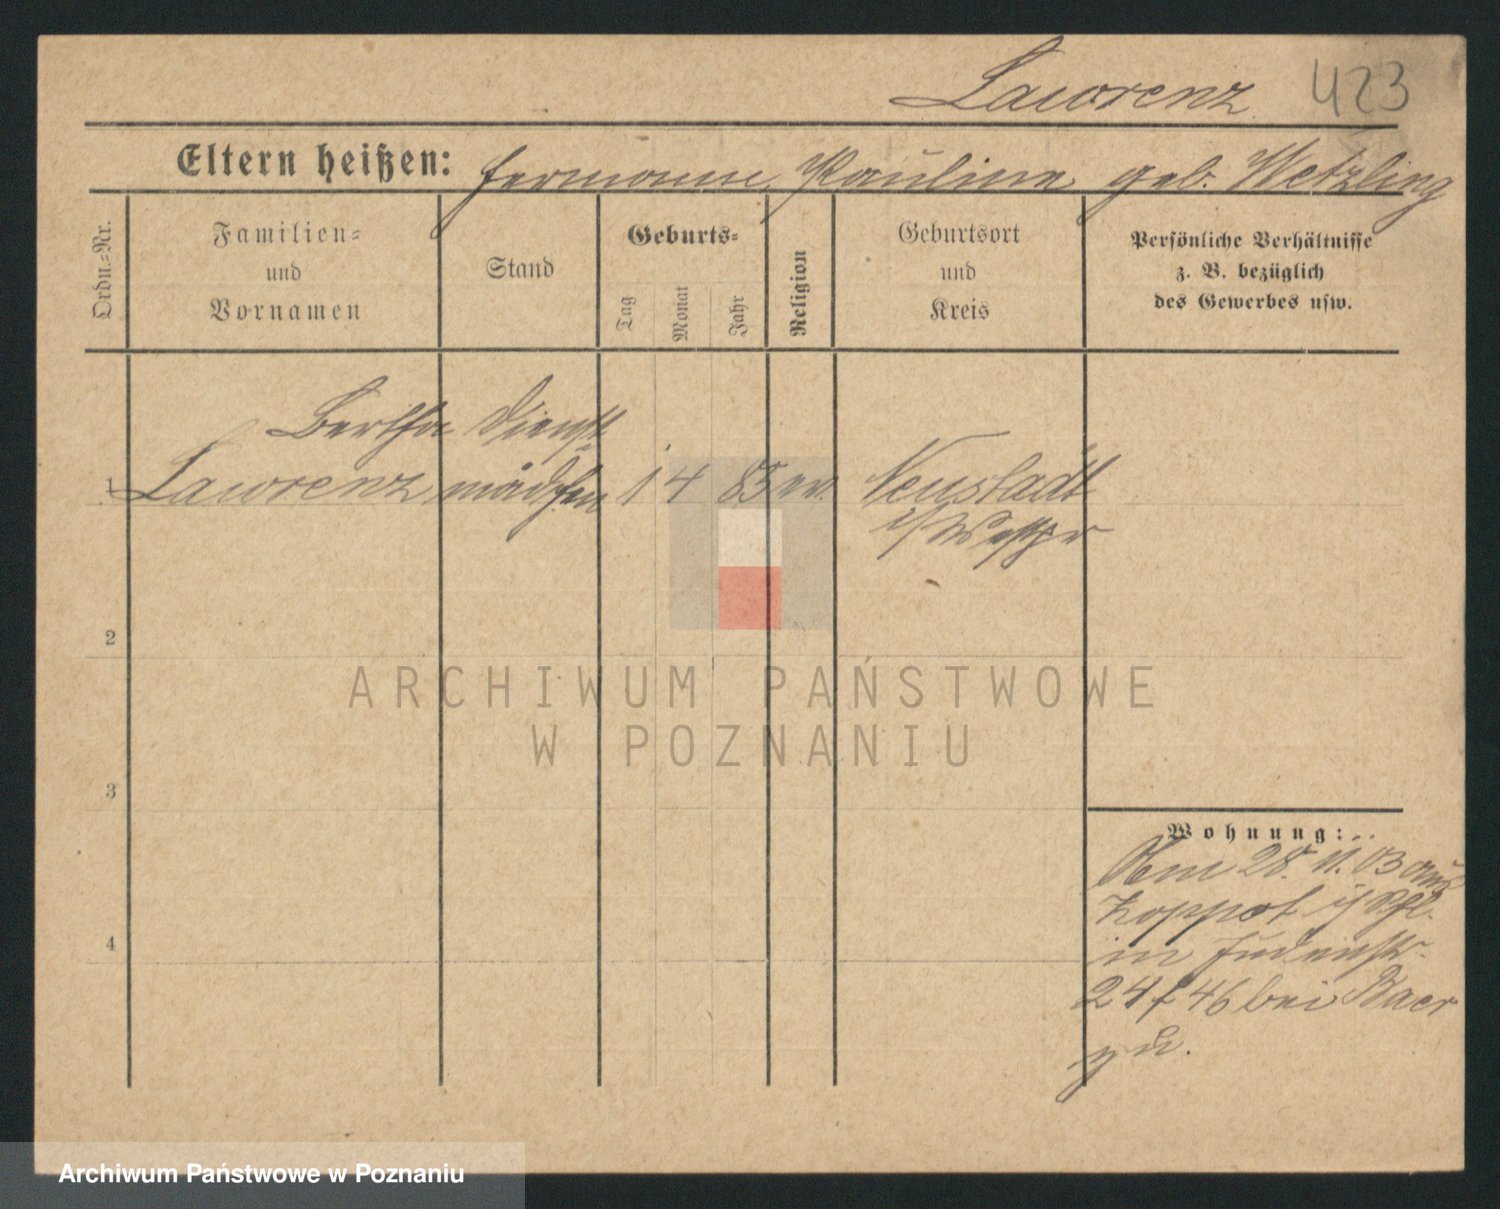 Lawrenz 423
Eltern heißen: Hermann, Pauline geb. Wetzling
Ordn.-Nr.
Familien-
und
Vornamen
Stand
Geburts-
Tag
Monat
Jahr
Religion
Geburtsort
und
Kreis
Persönliche Verhältnisse
z. B. bezüglich
des Gewerbes usw.
Bertha Dienst
1 Lawrenz mädchen 1 4 85 ev. Neustadt
i/Westpr
2
ARCHIWUM PAŃSTWOWE
W POZNANIU
3
Wohnung:
28. 11. 03 aus
Zoppot
in Judenstr.
24 / 46 bei Baer
zu.
4
Archiwum Państwowe w Poznaniu